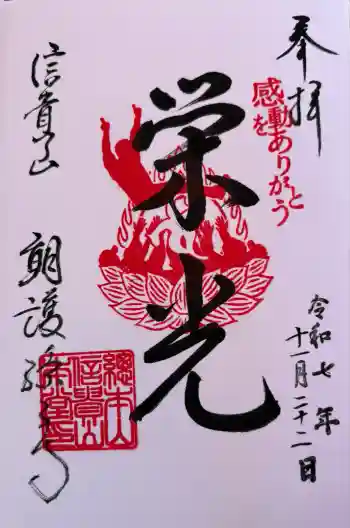 奉拝
感動を
ありがとう
栄光
令和七年
十一月二十二日
信貴山
朝護孫子寺
總本山
信貴山